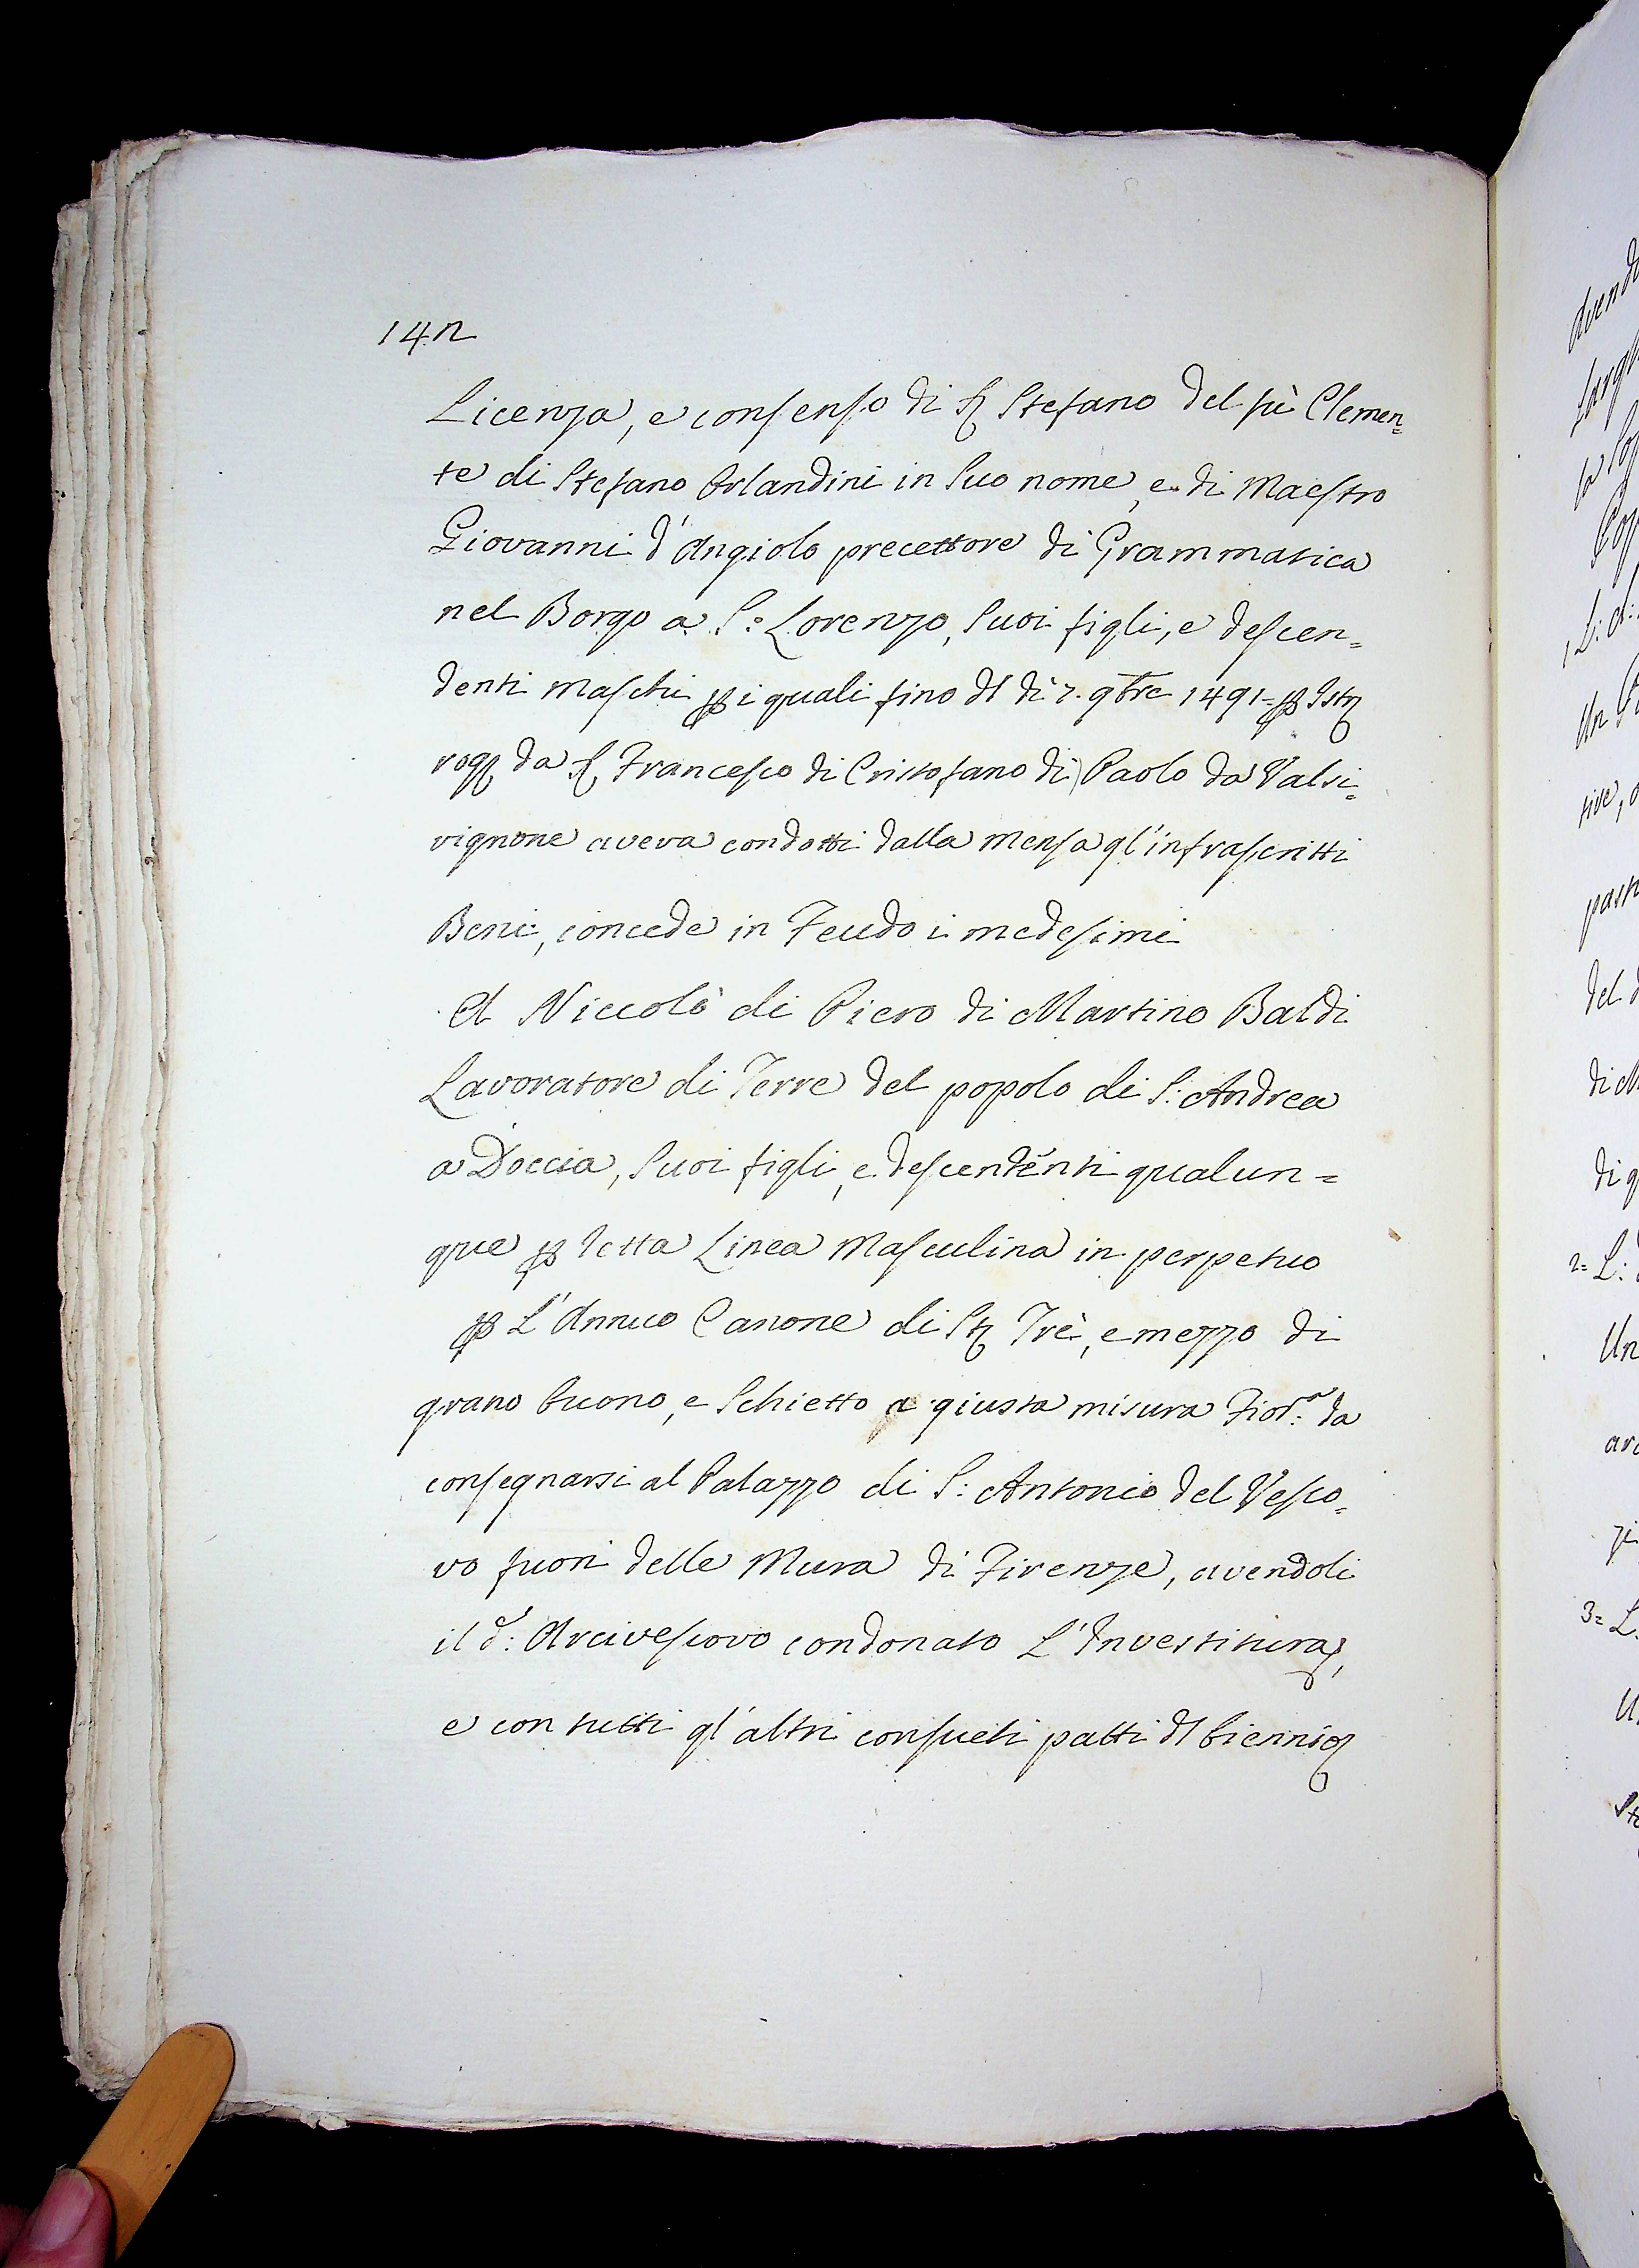 14n
Licenza, e consenso di S Stefano del fù Clemen=
te di Stefano Orlandini in Suo nome, e di Maestro
Giovanni d'Angiolo precettore di Grammatica
nel Borgo a S:o Lorenzo, Suoi figli, e descen=
denti maschi p i quali fino dl dì 7. 9bre 1491= p Istr
rog da S Francesco di Cristofano di Paolo da Valsi=
vignone aveva condotti dalla Mensa gl'infrascritti
Beni, concede in Feudo i medesimi
A Niccolò di Piero di Martino Baldi
Lavoratore di Terre del popolo di S: Andrea
a Doccia, Suoi figli, e descendenti qualun=
que p retta Linea Masculina in perpetuo
p L'Annuo Canone di St Trè, e mezzo di
grano buono, e Schietto a giusta misura Fior:a da
consegnarsi al Palazzo di S: Antonio del Vesco=
vo fuori delle Mura di Firenze, avendoli
il d: Arcivescovo condonato L'Investitura,
e con tutti gl'altri consueti patti dl biennio
2= L:
Un
3= L.